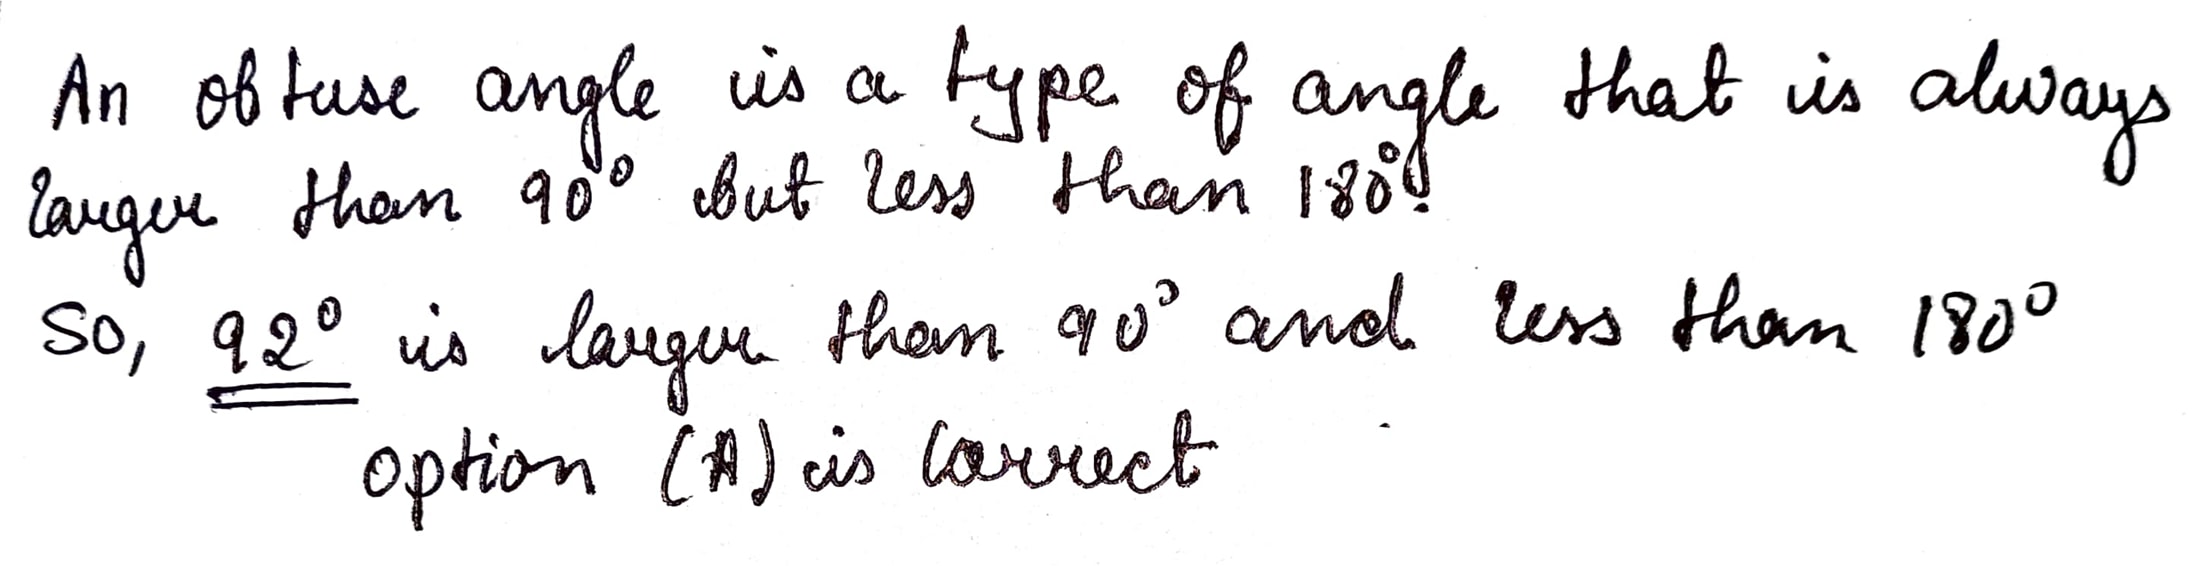 An obtuse angle is a type of angle that is always
larger than 90° but less than 180°.
So, 92° is larger than 90° and less than 180°
option (A) is correct